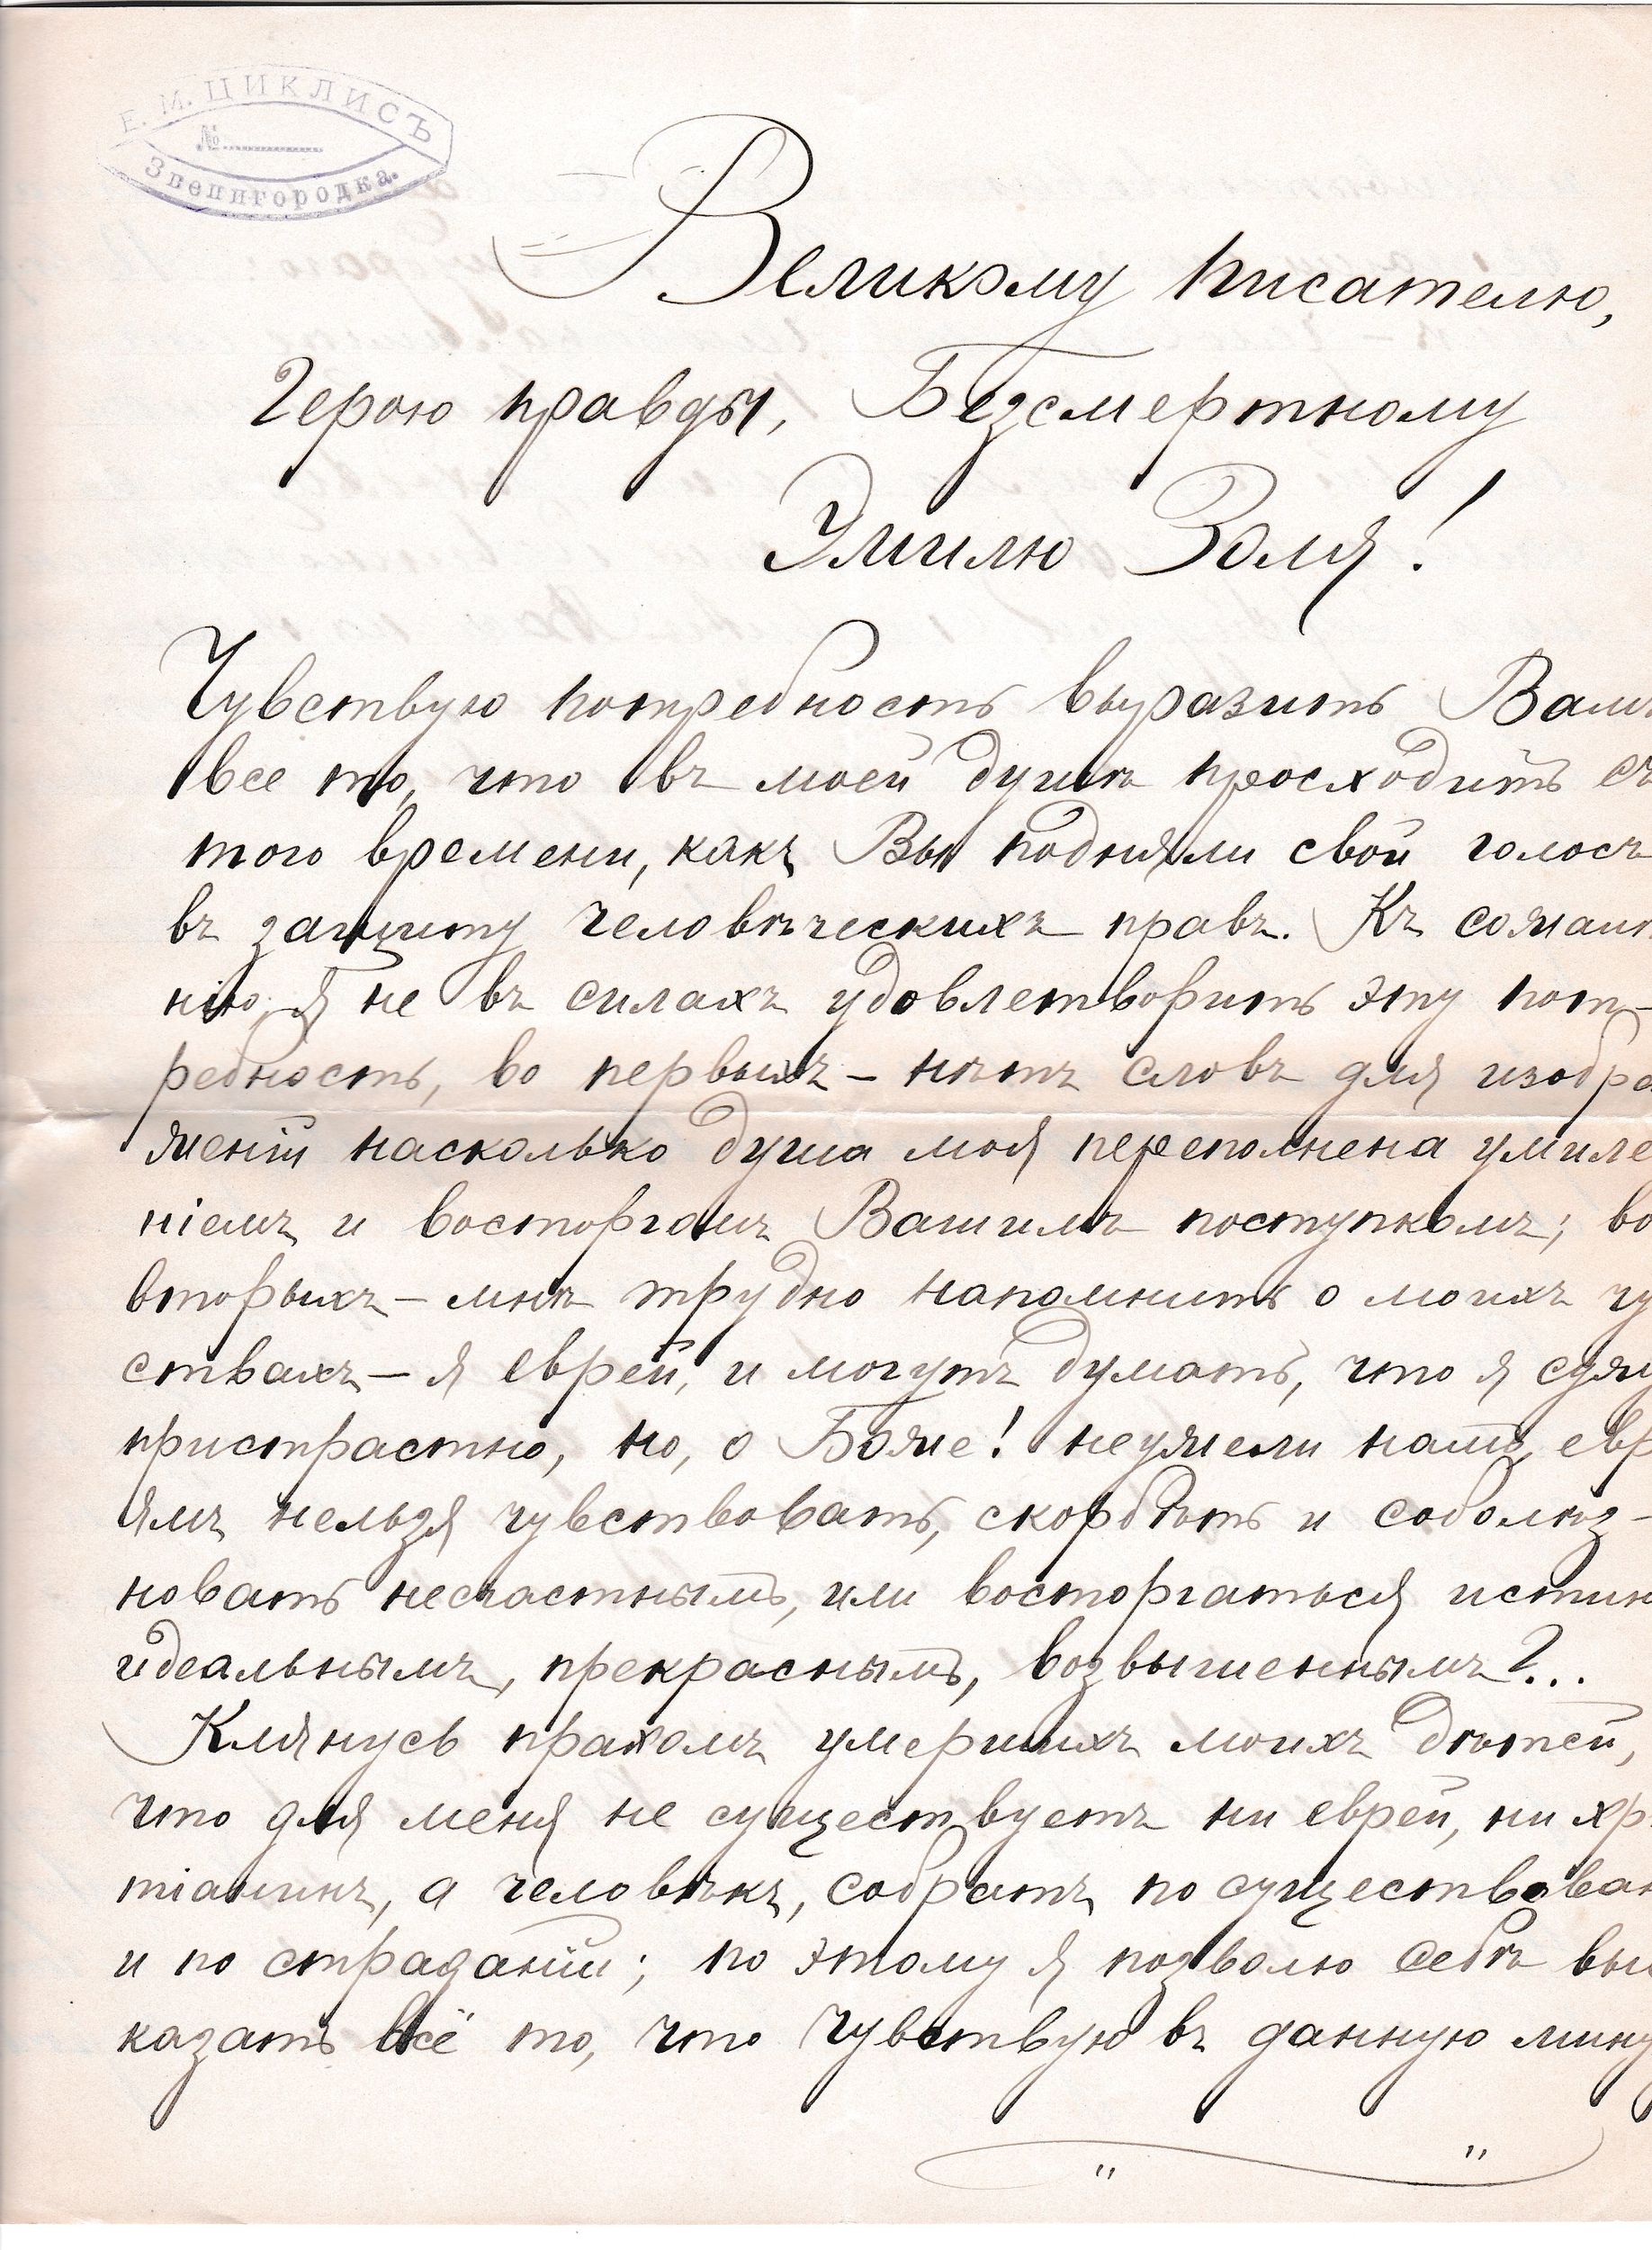 Е. М. ЦИКЛИСЪ
№
Звенигородка.
Великому писателю,
Герою правды, Безсмертному
Эмилю Золя!
Чувствую потребность выразить Вамъ
все то, что въ моей душѣ просходитъ съ
того времени, какъ Вы подняли свой голосъ
въ защиту человѣческихъ правъ. Къ сожалѣ
нію, я не въ силахъ удовлетворить эту пот-
ребность, во первыхъ – нѣтъ словъ для изобра
женій насколько душа моя переполнена умиле
ніемъ и восторгомъ Вашимъ поступкомъ; во
вторыхъ – мнѣ трудно напомнить о моихъ чу
ствахъ – я еврей, и могутъ думать, что я сужу
пристрастно, но, о Боже! неужели намъ, евр
ямъ нельзя чувствовать, скорбѣть и соболѣз-
новать несчастнымъ, или восторгаться истин
идеальнымъ, прекраснымъ, возвышеннымъ?...
Клянусь прахомъ умершихъ моихъ дѣтей,
что для меня не существуетъ ни еврей, ни хр
тіанинъ, а человѣкъ, собратъ по существован
и по страданій; по этому я позволю себѣ вы
казать всё то, что чувствую въ данную мину